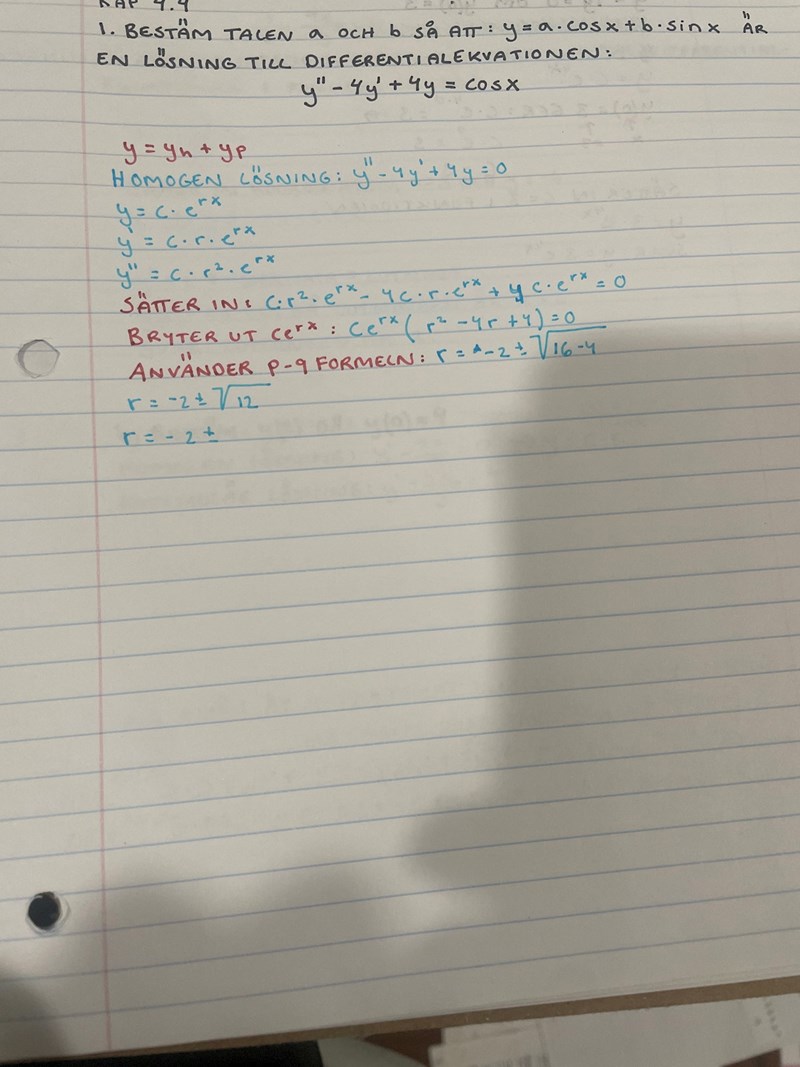 KAP 4.4
1. BESTÄM TALEN a OCH b SÅ ATT: y = a·cosx + b·sinx ÄR
EN LÖSNING TILL DIFFERENTIALEKVATIONEN:
y'' - 4y' + 4y = cosx
y = yh + yp
HOMOGEN LÖSNING: y'' - 4y' + 4y = 0
y = C·e^rx
y' = C·r·e^rx
y'' = C·r²·e^rx
SÄTTER IN: C·r²·e^rx - 4C·r·e^rx + 4C·e^rx = 0
BRYTER UT Ce^rx: Ce^rx(r² - 4r + 4) = 0
ANVÄNDER P-q FORMELN: r = -2 ± √16-4
r = -2 ± √12
r = -2 ±